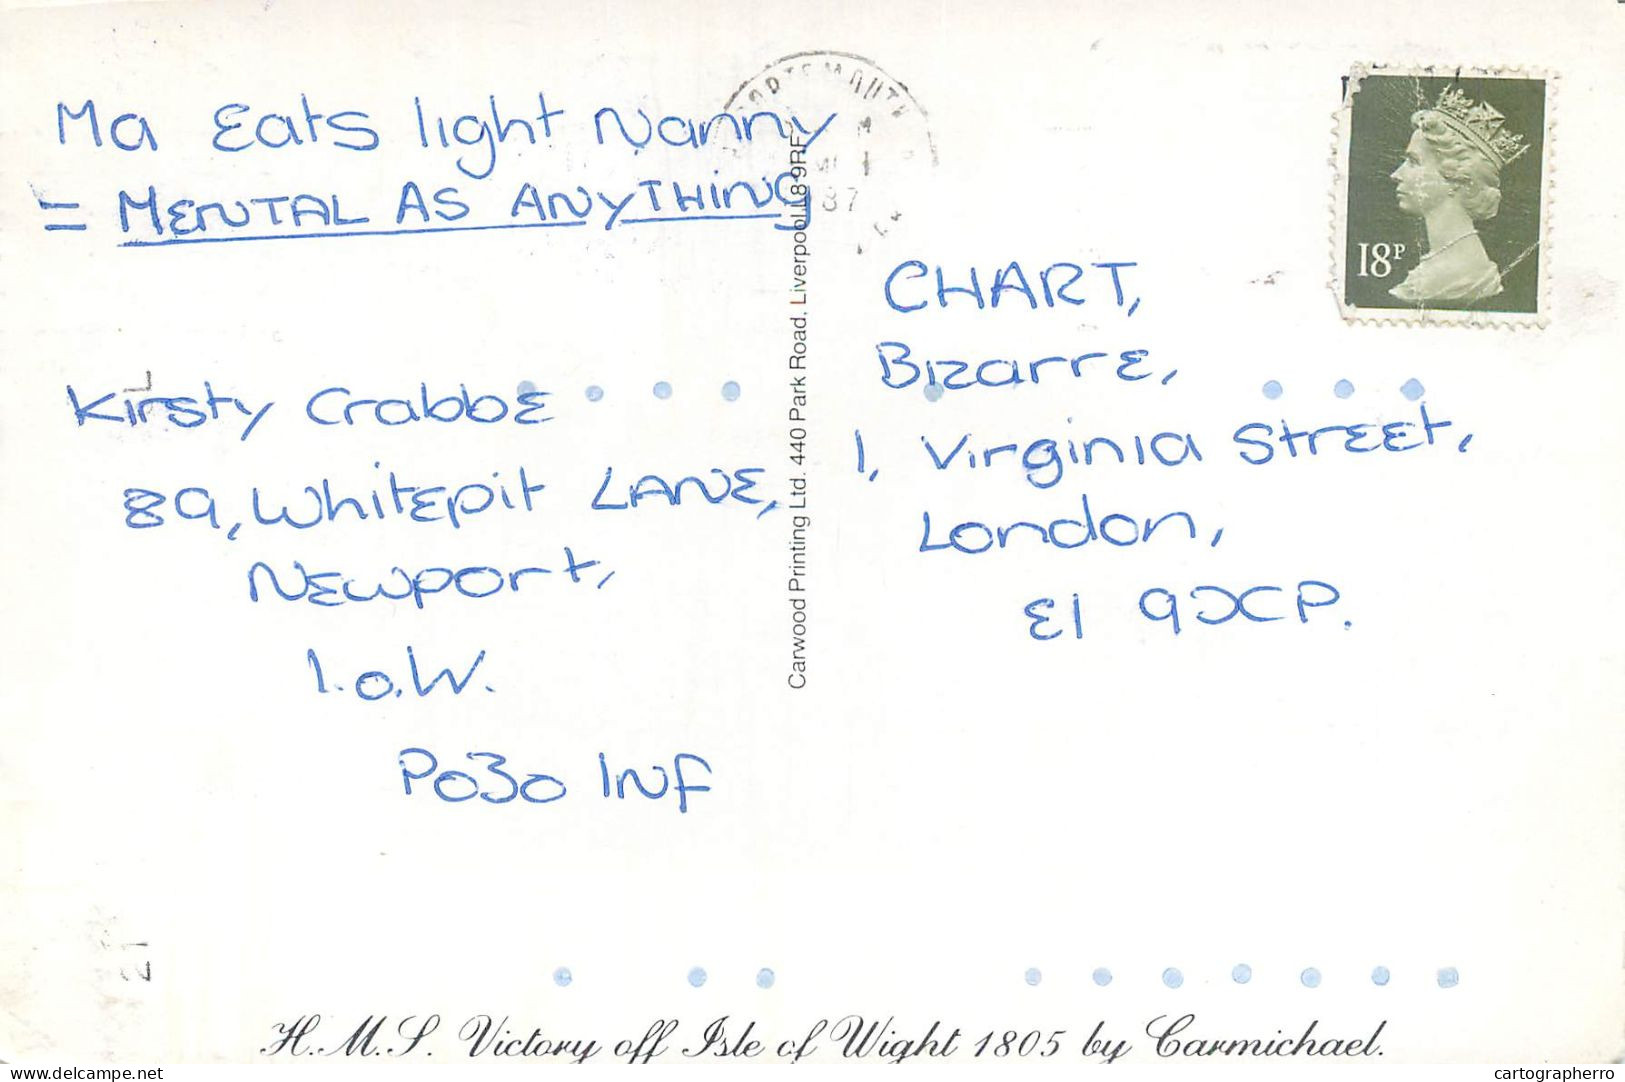 Ma Eats light Nanny
= MENTAL AS ANYTHING
Kirsty Crabbe
89, Whitepit LANE,
Newport,
I.O.W.
PO30 1NF
PORTSMOUTH
87
18P
CHART,
Bizarre,
1, Virginia Street,
London,
E1 9XP.
Carwood Printing Ltd. 440 Park Road, Liverpool L8 9RF
21
H.M.S. Victory off Isle of Wight 1805 by Carmichael.
delcampe.net
cartographerro